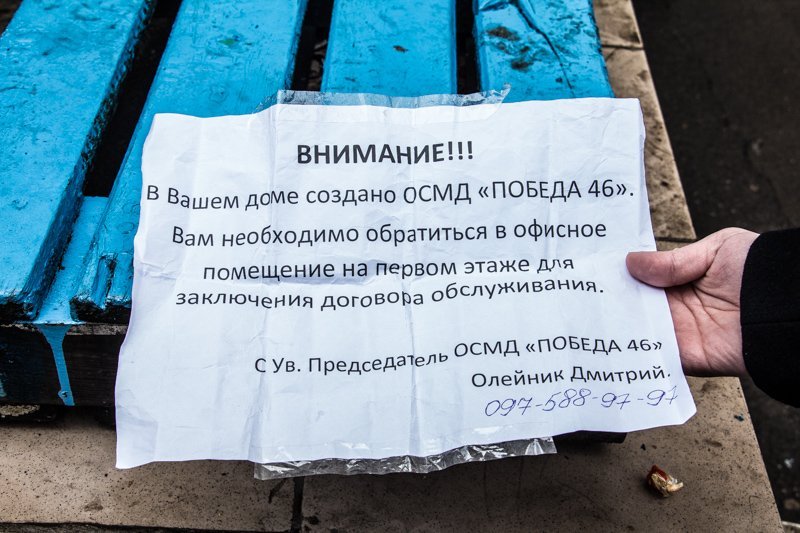 ВНИМАНИЕ!!!
В Вашем доме создано ОСМД «ПОБЕДА 46».
Вам необходимо обратиться в офисное
помещение на первом этаже для
заключения договора обслуживания.
С Ув. Председатель ОСМД «ПОБЕДА 46»
Олейник Дмитрий.
097-588-97-97